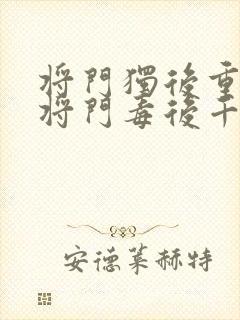 將門獨後重
將門毒後千
安德萊赫特